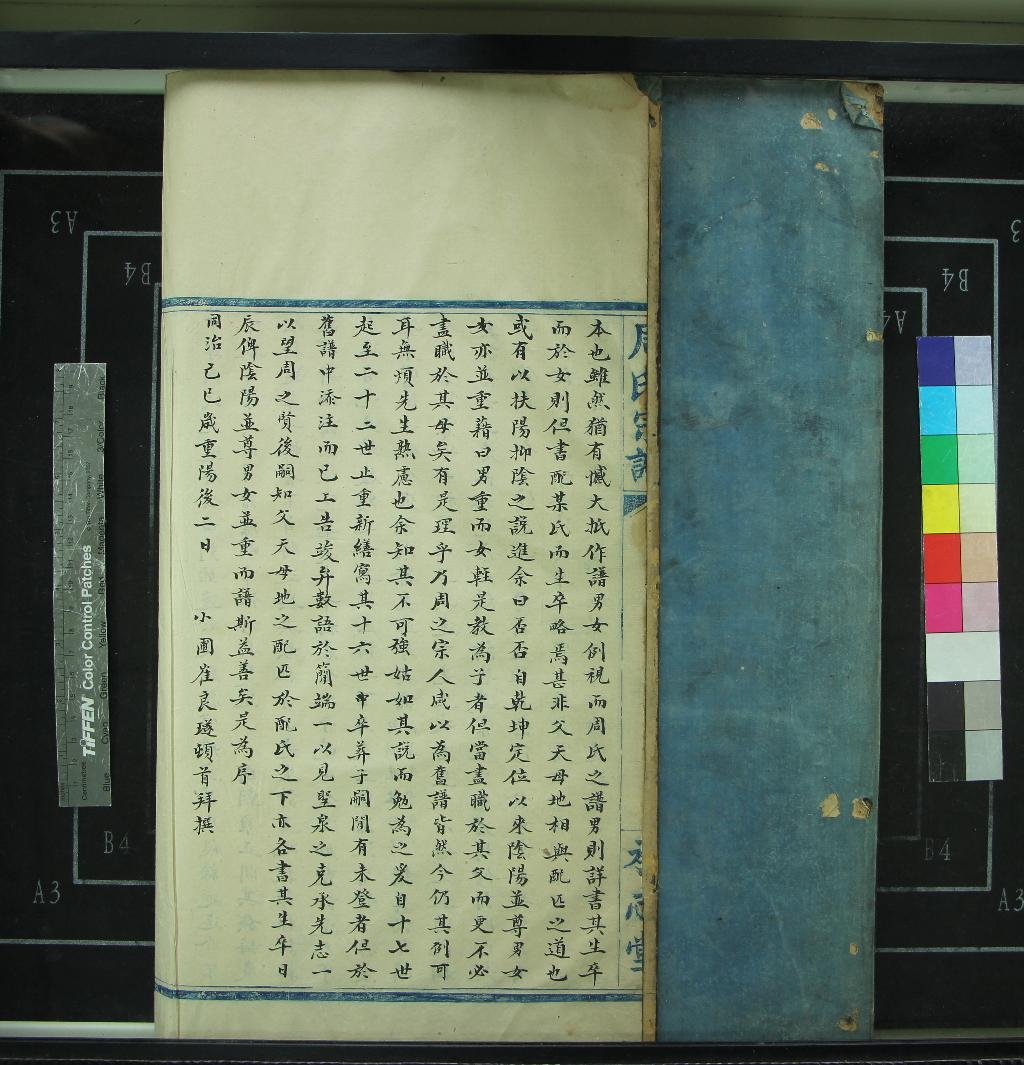 周氏宗譜
本也雖然猶有憾大抵作譜男女例視而周氏之譜男則詳書其生卒
而於女則但書配某氏而生卒略焉甚非父天母地相與配匹之道也
或有以扶陽抑陰之說進余曰否否自乾坤定位以來陰陽並尊男女
女亦並重藉曰男重而女輕是教為子者但當盡職於其父而更不必
盡職於其母矣有是理乎乃周之宗人咸以為舊譜皆然今仍其例可
耳無煩先生熟慮也余知其不可強姑如其說而勉為之爰自十七世
起至二十二世止重新繕寫其十六世中卒葬子嗣間有未登者但於
舊譜中添注而已工告竣弁數語於簡端一以見聖泉之克承先志一
以望周之賢後嗣知父天母地之配匹於配氏之下亦各書其生卒日
辰俾陰陽並尊男女並重而譜斯益善矣是為序
同治己巳歲重陽後二日 小圃崔良璲頓首拜撰
堂
TIFFEN Color Control Patches
Centimetres
Blue
Green
Yellow
Red
Magenta
White
3/Color
Black
A3
B4
B4
A3
B4
A4
3
B4
A3